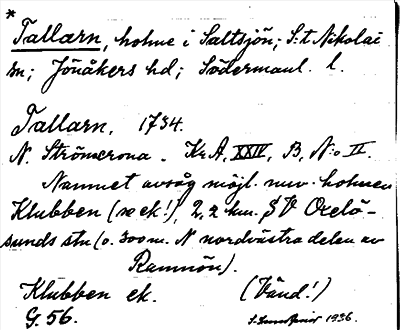 *
Tallarn, holme i Saltsjön; S:t Nikolai
sn; Jönåkers hd; Södermanl. l.
Tallarn, 1734.
N. Strömcrona. Kr A, XXIV, B, N:o II.
Namnet avsåg möjl. nuv. holmen
Klubben (se ek!), 2,2 km. SV Oxelö-
sunds stn (o. 300 m. N nordvästra delen av
Ramnön).
Klubben ek. (Vänd!)
G. 56. 1936.